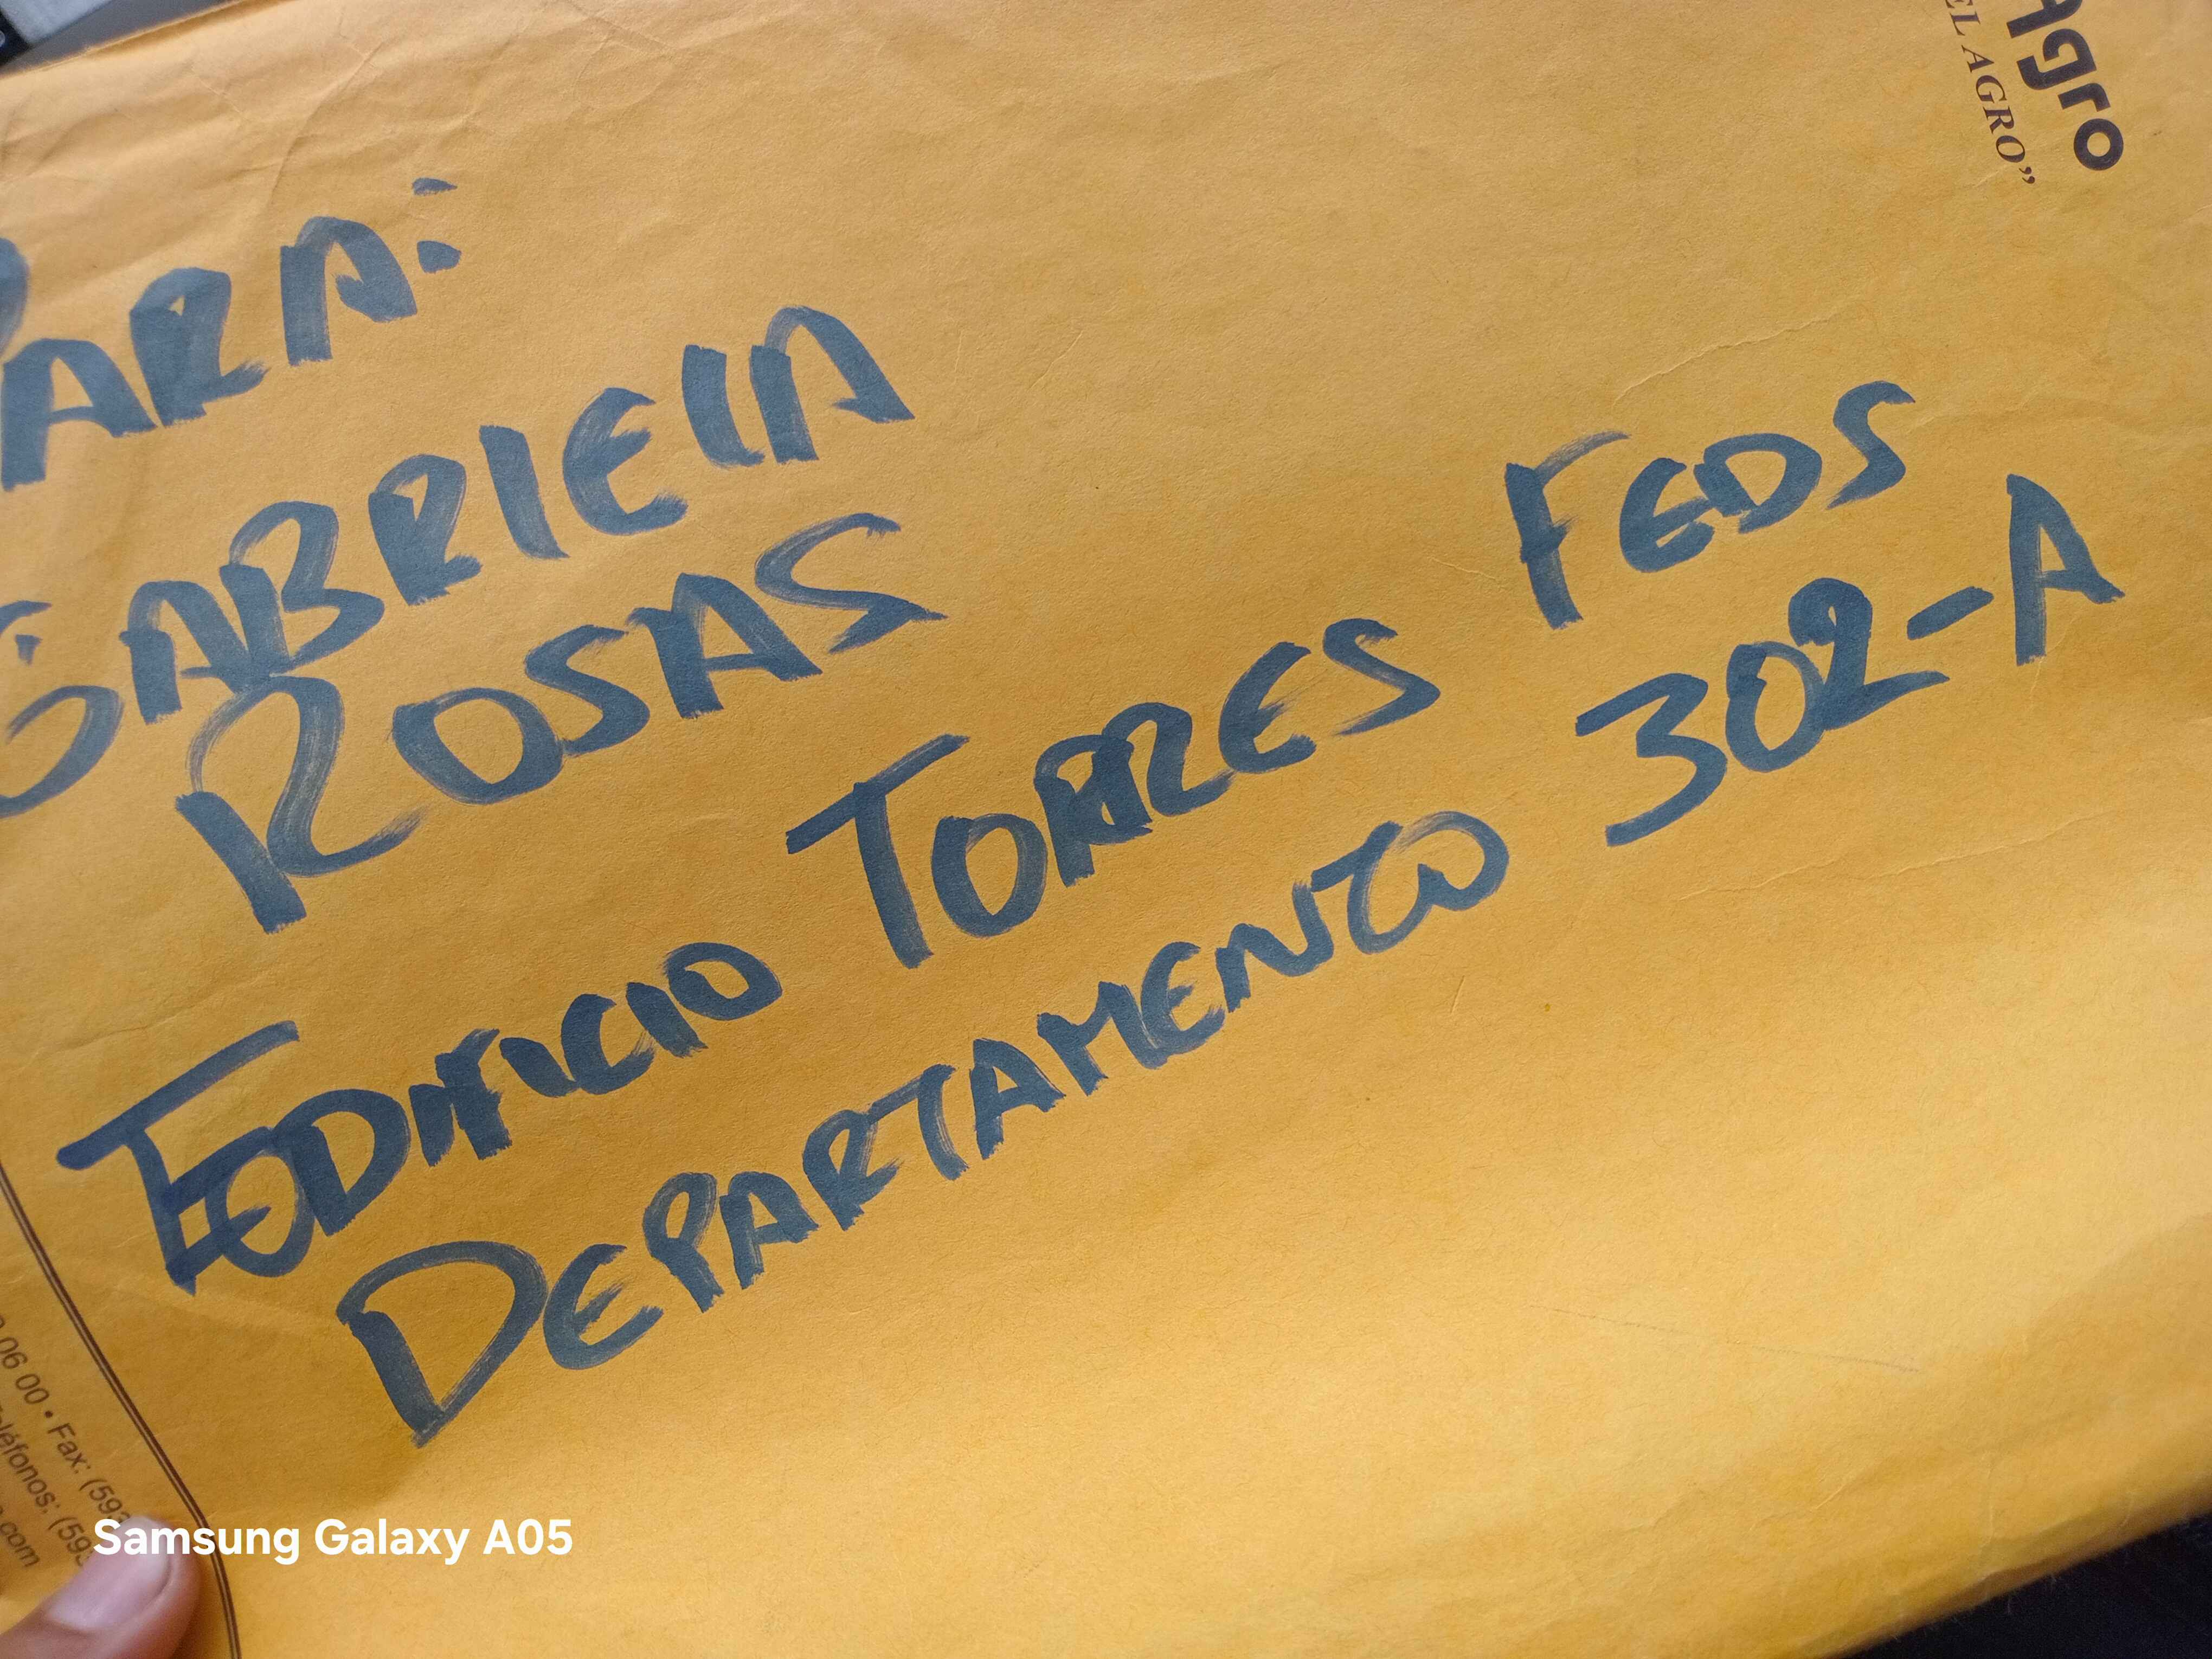 Agro
EL AGRO”
PARA:
GABRIELA
ROSAS
EDIFICIO TORRES FEDS
DEPARTAMENTO 302-A
06 00 • Fax: (593
Teléfonos: (593
.com
Samsung Galaxy A05